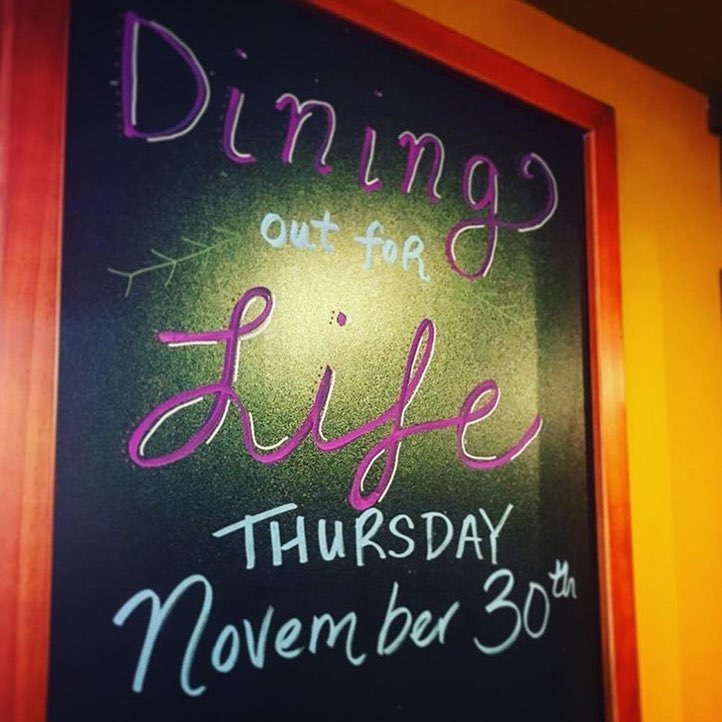 Dining
out for
Life
THURSDAY
November 30th